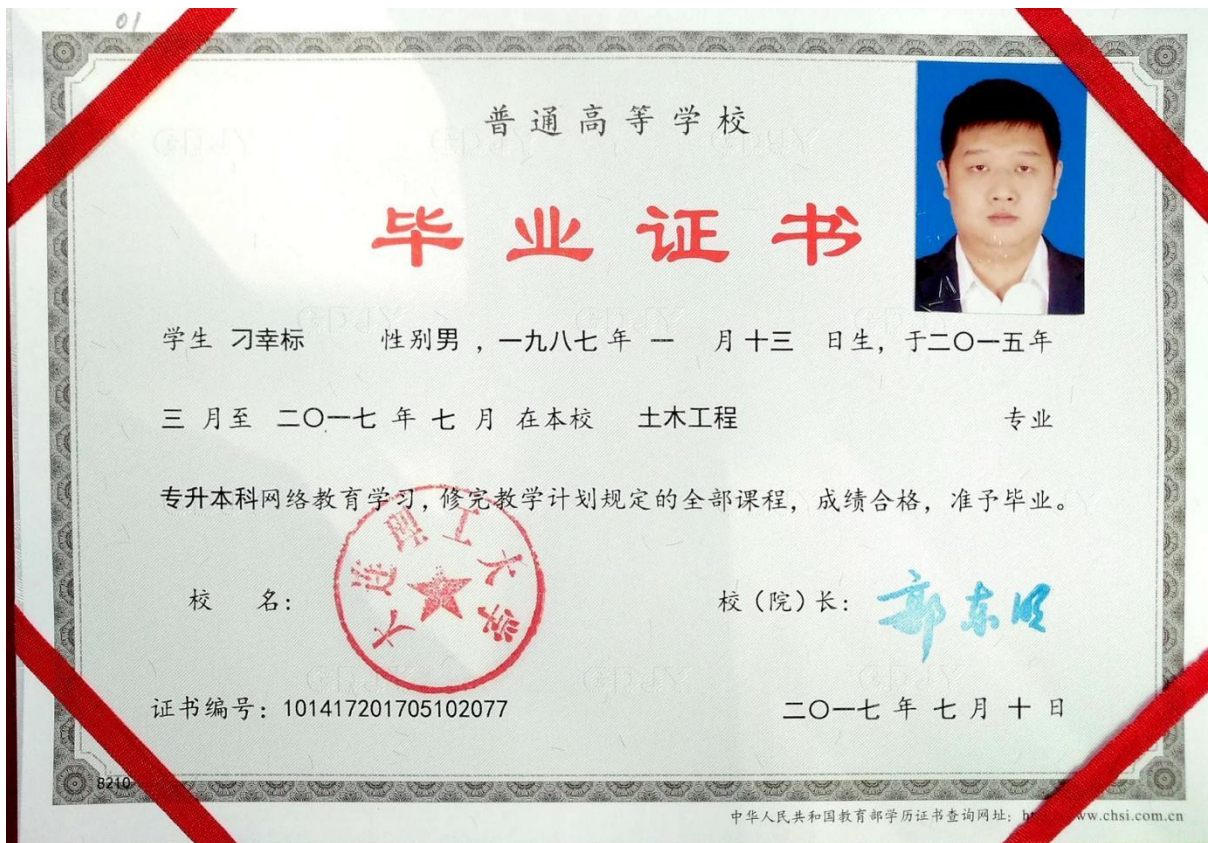 01
普通高等学校
毕业证书
学生 刁幸标 性别男，一九八七年 一 月十三 日生，于二〇一五年
三 月至 二〇一七 年 七 月 在本校 土木工程 专业
专升本科网络教育学习，修完教学计划规定的全部课程，成绩合格，准予毕业。
大连理工大学
校 名： 校（院）长： 郭东明
证书编号：101417201705102077 二〇一七 年 七 月 十 日
8210
中华人民共和国教育部学历证书查询网址：h ww.chsi.com.cn